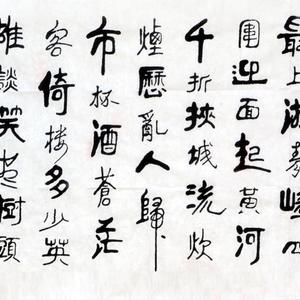 最上游嶂四
圍迎面起黃河
千折挾城流炊
煙歷亂人歸
市杯酒蒼茫
客倚樓多少英
雄談笑樹頭